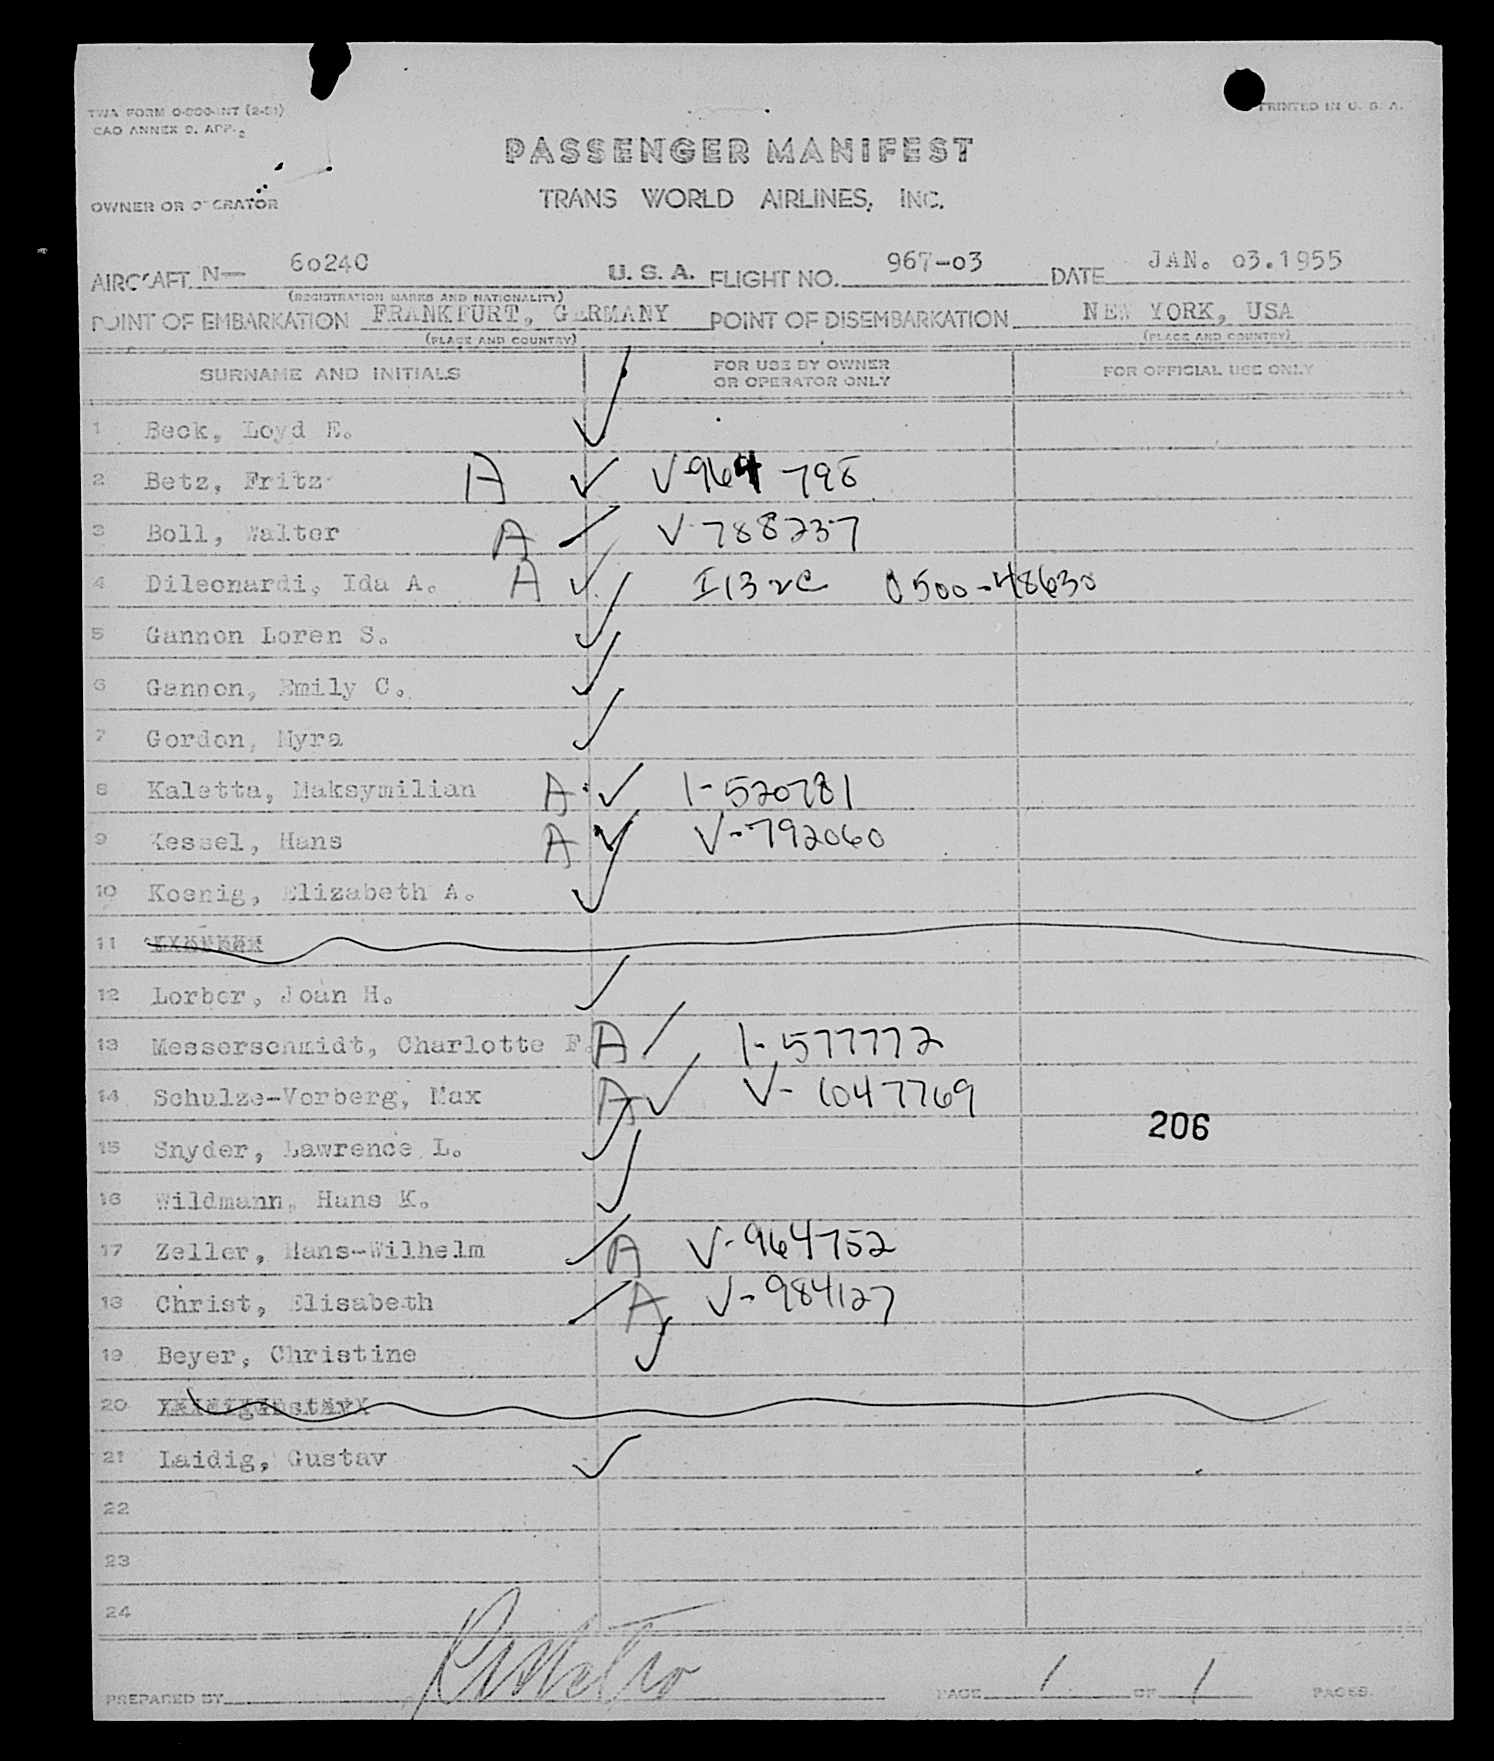 TWA FORM O-800-INT (2-51)
PRINTED IN U. S. A.
CAO ANNEX 9. APP. 2
PASSENGER MANIFEST
OWNER OR OPERATOR
TRANS WORLD AIRLINES, INC.
AIRCRAFT N— 6024C U. S. A. FLIGHT NO. 967-03 DATE JAN. 03.1955
(REGISTRATION MARKS AND NATIONALITY)
POINT OF EMBARKATION FRANKFURT, GERMANY POINT OF DISEMBARKATION NEW YORK, USA
(PLACE AND COUNTRY) (PLACE AND COUNTRY)
SURNAME AND INITIALS FOR USE BY OWNER OR OPERATOR ONLY FOR OFFICIAL USE ONLY
1 Beck, Loyd E. ✓
2 Betz, Fritz A ✓ V-964798
3 Boll, Walter A ✓ V-788237
4 Dileonardi, Ida A. A ✓ I132C 0500-48630
5 Gannon Loren S. ✓
6 Gannon, Emily C. ✓
7 Gordon, Myra ✓
8 Kaletta, Maksymilian A ✓ 1-520781
9 Kessel, Hans A ✓ V-792060
10 Koenig, Elizabeth A. ✓
11
12 Lorber, Joan H. ✓
13 Messerschmidt, Charlotte F. A / 1-577772
14 Schulze-Vorberg, Max A ✓ V-1047769
206
15 Snyder, Lawrence L. ✓
16 Wildmann, Hans K. ✓
17 Zeller, Hans-Wilhelm ✓ A V-964752
18 Christ, Elisabeth ✓ A V-984127
19 Beyer, Christine ✓
20
21 Laidig, Gustav ✓
22
23
24
PREPARED BY PAGE 1 OF 1 PAGES.